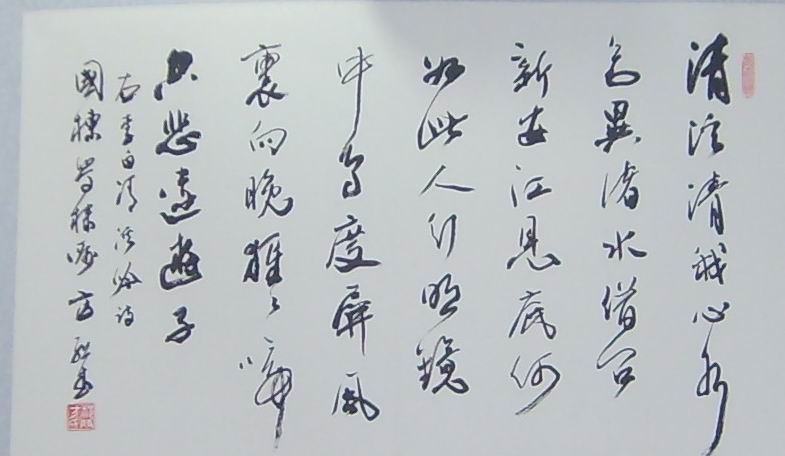 清溪清我心水
色異諸水借問
新安江見底何
如此人行明鏡
中鳥度屏風
裏向晚猩々啼
空悲遠遊子
右李白清溪吟诗
國棟 棣 方 書